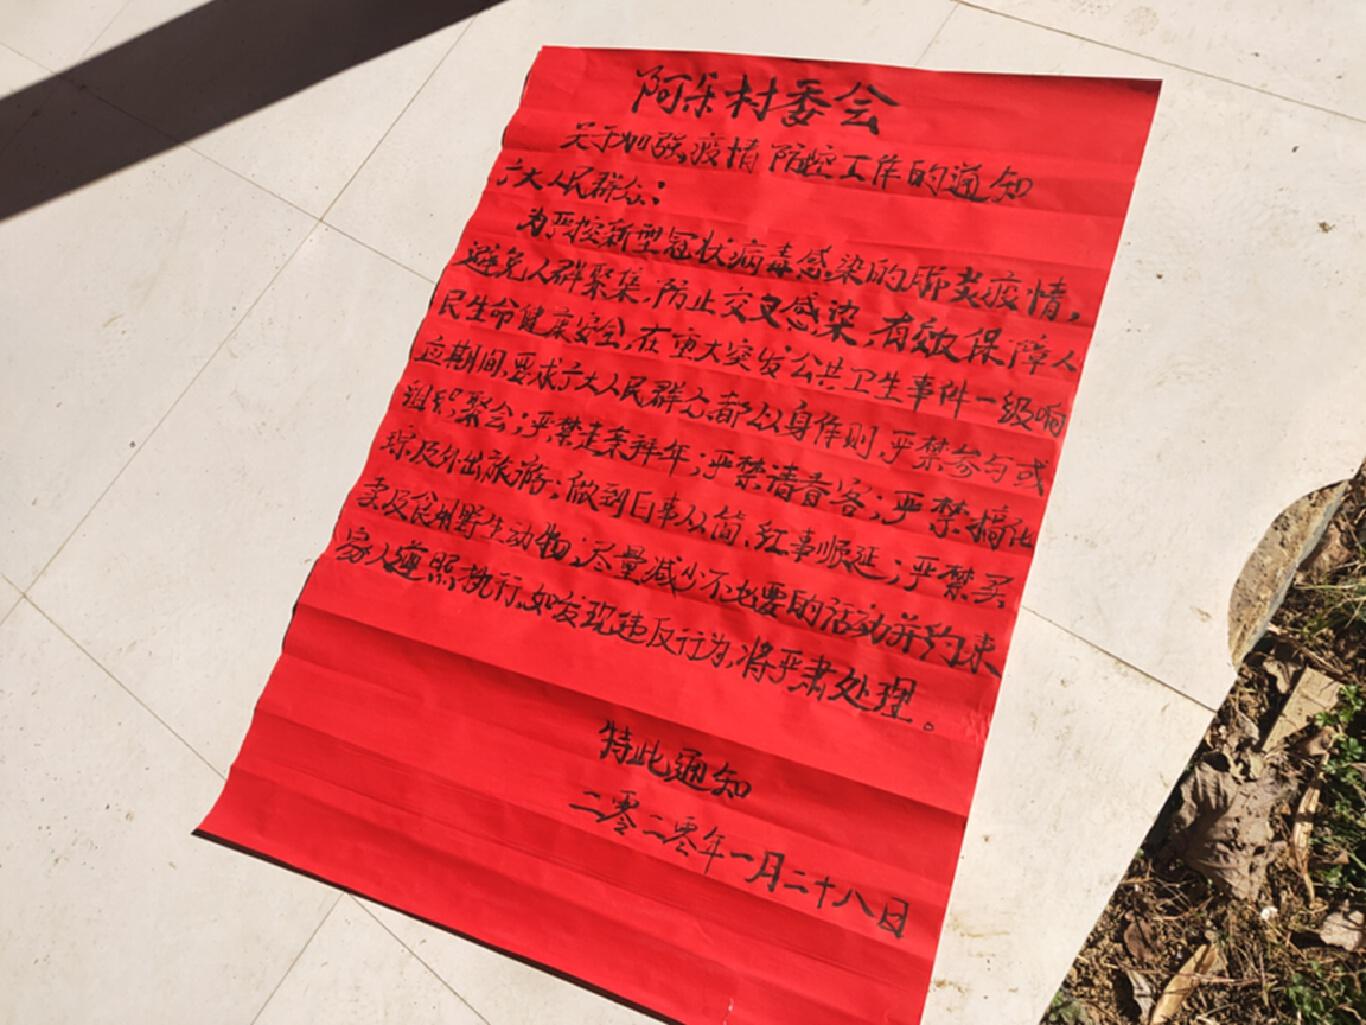 阿朵村委会
关于加强疫情防控工作的通知
广大人民群众:
为严控新型冠状病毒感染的肺炎疫情,
避免人群聚集,防止交叉感染,有效保障人
民生命健康安全,在重大突发公共卫生事件一级响
应期间,要求广大人民群众都以身作则,严禁参与或
组织聚会;严禁走亲拜年;严禁请春客;严禁搞
及外出旅游;做到白事从简,红事顺延;严禁买
卖及食用野生动物;尽量减少不必要的活动并约束
家人遵照执行,如发现违反行为,将严肃处理。
特此通知
二零二零年一月二十八日